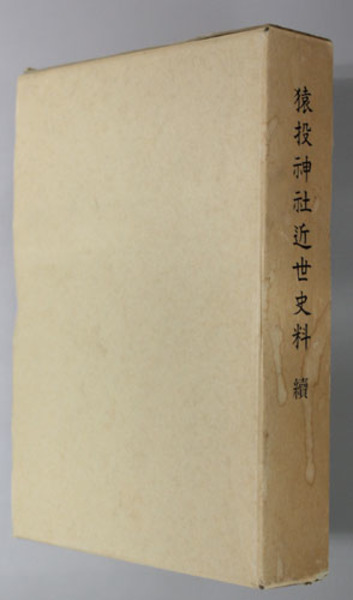 猿投神社近世史料 續